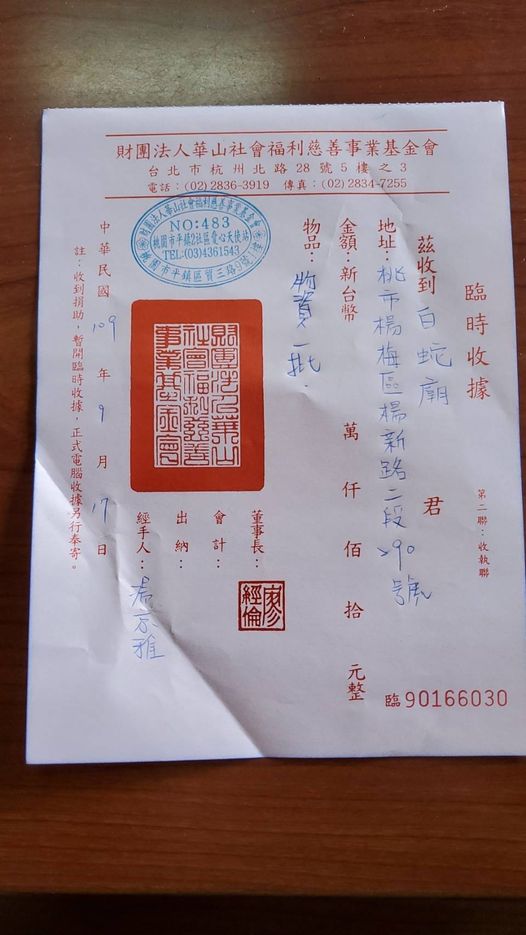 財團法人華山社會福利慈善事業基金會
台北市杭州北路28號5樓之3
電話：(02)2836-3919 傳真：(02)2834-7255
臨時收據
第二聯：收執聯
茲收到 白蛇廟 君
地址：桃市楊梅區楊新路二段290號
金額：新台幣 萬 仟 佰 拾 元整
物品：物資一批.
財團法人華山社會福利慈善事業基金會
NO:483
桃園市平鎮2社區愛心天使站
TEL:(03)4361543
財團法人華山社會福利慈善事業基金會
董事長：
會計：
出納：
經手人：
中華民國 109 年 9 月 17 日
註：收到捐助，暫開臨時收據，正式電腦收據另行奉寄。
臨90166030